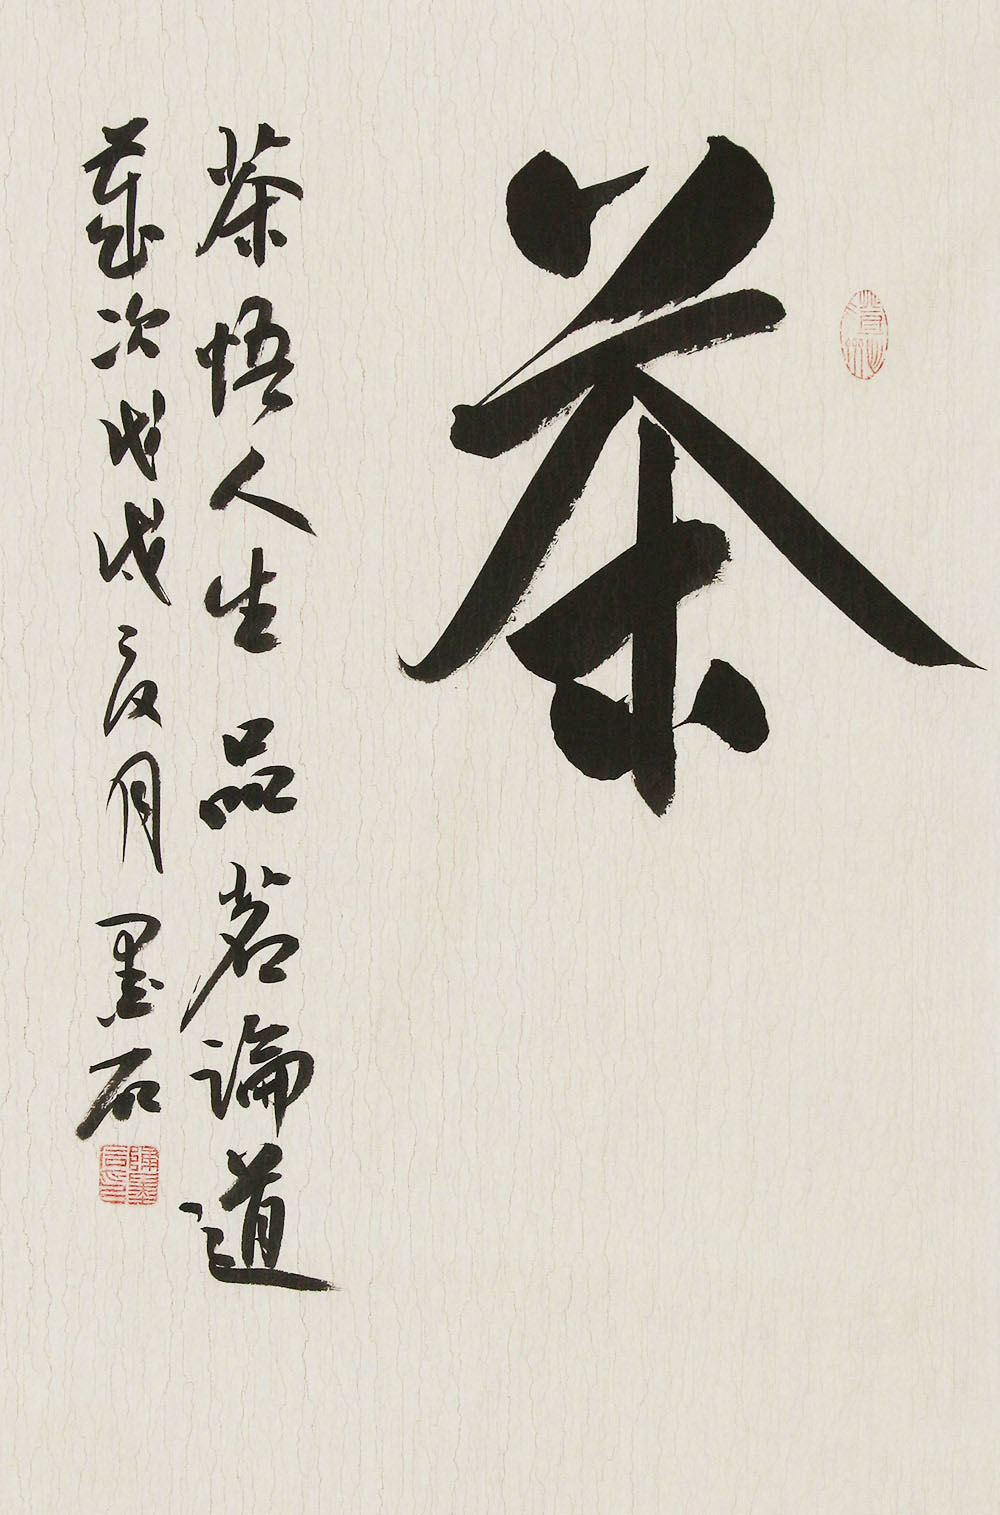 茶
茶悟人生品茗論道
歲次戊戌夏月墨石